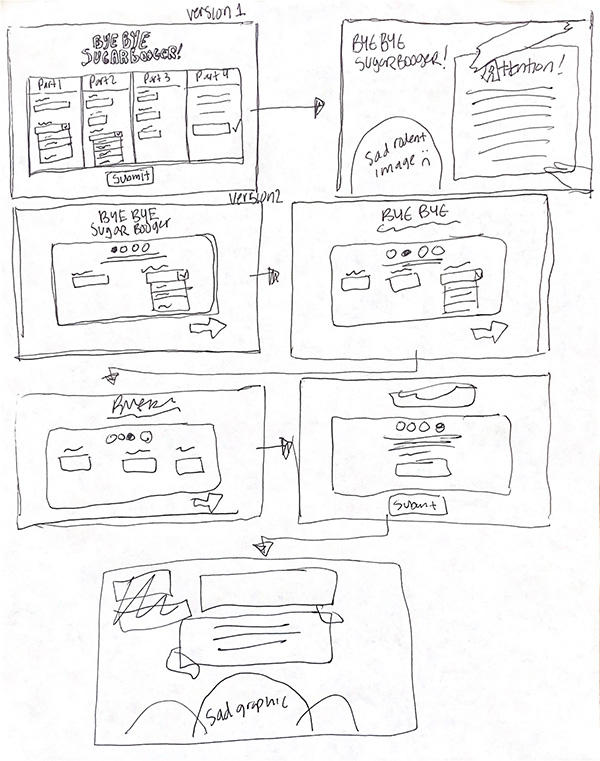 version 1
BYE BYE
SUGARBOOGER!
Part 1
Part 2
Part 3
Part 4
Submit
BYE BYE
SUGARBOOGER!
Attention!
Sad rodent
image :(
version 2
BYE BYE
Sugar Booger
BYE BYE
Submit
Sad graphic